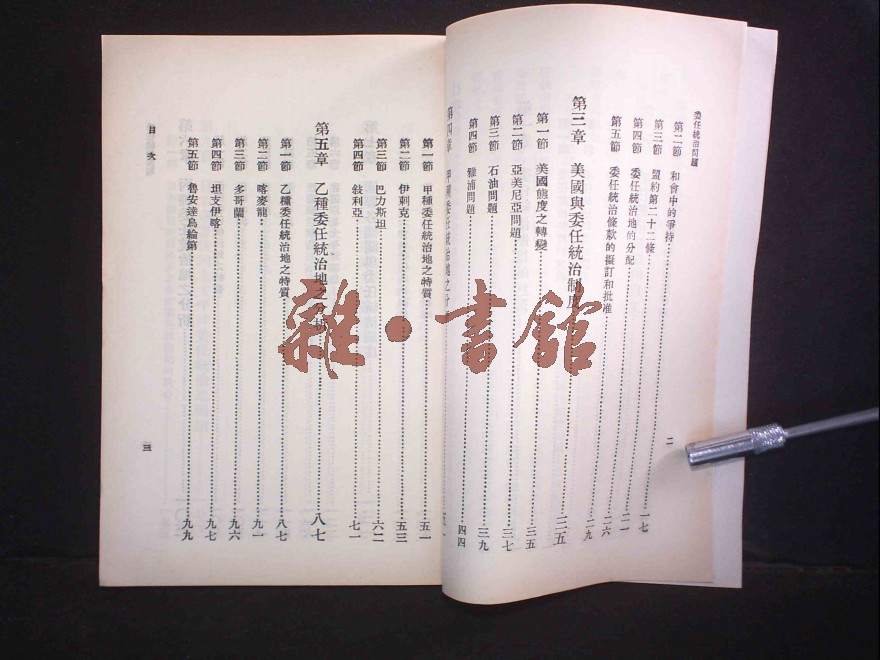 委任統治問題
第二節 和會中的爭持 一七
第三節 盟約第二十二條
第四節 委任統治地的分配 二一
第五節 委任統治條欵的擬訂和批准 二六
二九
第三章 美國與委任統治制度 三五
第一節 美國態度之轉變 三五
第二節 亞美尼亞問題 三七
第三節 石油問題 三九
第四節 雅浦問題 四四
第四章 甲種委任統治地之分 五一
二
第一節 甲種委任統治地之特質 五一
第二節 伊剌克 五三
第三節 巴力斯坦 六二
第四節 敍利亞 七一
第五章 乙種委任統治地之分析 八七
第一節 乙種委任統治地之特質 八七
第二節 喀麥龍 九一
第三節 多哥蘭 九六
第四節 坦支伊喀 九七
第五節 魯安達烏綸第 九九
目次
三
雜·書館